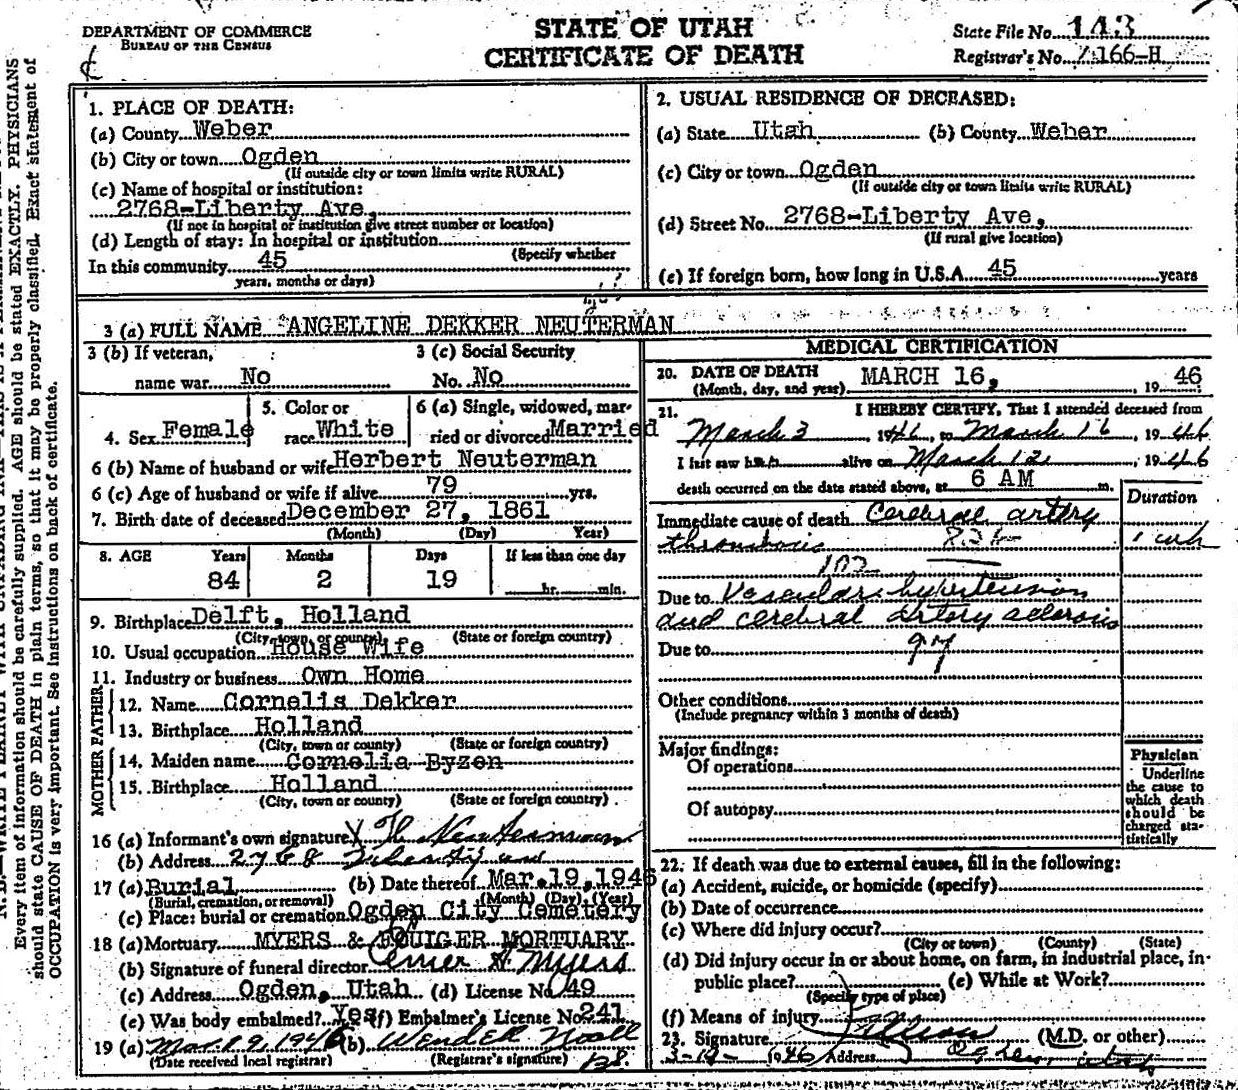 DEPARTMENT OF COMMERCE
BUREAU OF THE CENSUS
STATE OF UTAH
CERTIFICATE OF DEATH
State File No. 143
Registrar's No. 166-H
Every item of information should be carefully supplied. AGE should be stated EXACTLY. PHYSICIANS
should state CAUSE OF DEATH in plain terms, so that it may be properly classified. Exact statement of
OCCUPATION is very important. See instructions on back of certificate.
1. PLACE OF DEATH:
(a) County Weber
(b) City or town Ogden
(If outside city or town limits write RURAL)
(c) Name of hospital or institution:
2768-Liberty Ave,
(If not in hospital or institution give street number or location)
(d) Length of stay: In hospital or institution
(Specify whether
In this community 45
years, months or days)
2. USUAL RESIDENCE OF DECEASED:
(a) State Utah (b) County Weber
(c) City or town Ogden
(If outside city or town limits write RURAL)
(d) Street No. 2768-Liberty Ave,
(If rural give location)
(e) If foreign born, how long in U.S.A 45 years
3 (a) FULL NAME ANGELINE DEKKER NEUTERMAN
3 (b) If veteran, name war No
3 (c) Social Security No. No
4. Sex Female
5. Color or race White
6 (a) Single, widowed, married or divorced Married
6 (b) Name of husband or wife Herbert Neuterman
6 (c) Age of husband or wife if alive 79 yrs.
7. Birth date of deceased December 27, 1861
(Month) (Day) Year)
8. AGE Years Months Days If less than one day
84 2 19 hr. min.
9. Birthplace Delft, Holland
(City, town, or county) (State or foreign country)
10. Usual occupation House Wife
11. Industry or business Own Home
FATHER
12. Name Cornelis Dekker
13. Birthplace Holland
(City, town or county) (State or foreign country)
MOTHER
14. Maiden name Cornelia Byzen
15. Birthplace Holland
(City, town or county) (State or foreign country)
16 (a) Informant's own signature
(b) Address 2768 Liberty ave
17 (a) Burial (b) Date thereof Mar. 19, 1946
(Burial, cremation, or removal) (Month) (Day) (Year)
(c) Place: burial or cremation Ogden City Cemetery
18 (a) Mortuary MYERS & FOULGER MORTUARY
(b) Signature of funeral director Elmer A Myers
(c) Address Ogden, Utah (d) License No 49
(e) Was body embalmed? Yes (f) Embalmer's License No 241
19 (a) Mar 19 1946 (b)
(Date received local registrar) (Registrar's signature)
MEDICAL CERTIFICATION
20. DATE OF DEATH
(Month, day, and year) MARCH 16, 19 46
21. I HEREBY CERTIFY, That I attended deceased from
March 3, 1946, to March 16, 1946
I last saw her alive on March 12, 1946
death occurred on the date stated above, at 6 AM m.
Duration
Immediate cause of death Cerebral artery
thrombosis 1 wk
Due to Vascular hypertension
and cerebral artery sclerosis
Due to 97
Other conditions
(Include pregnancy within 3 months of death)
Major findings:
Of operations
Of autopsy
Physician
Underline
the cause to
which death
should be
charged sta-
tistically
22. If death was due to external causes, fill in the following:
(a) Accident, suicide, or homicide (specify)
(b) Date of occurrence
(c) Where did injury occur?
(City or town) (County) (State)
(d) Did injury occur in or about home, on farm, in industrial place, in-
public place? (e) While at Work?
(Specify type of place)
(f) Means of injury
23. Signature (M.D. or other)
1946 Address Ogden, Utah